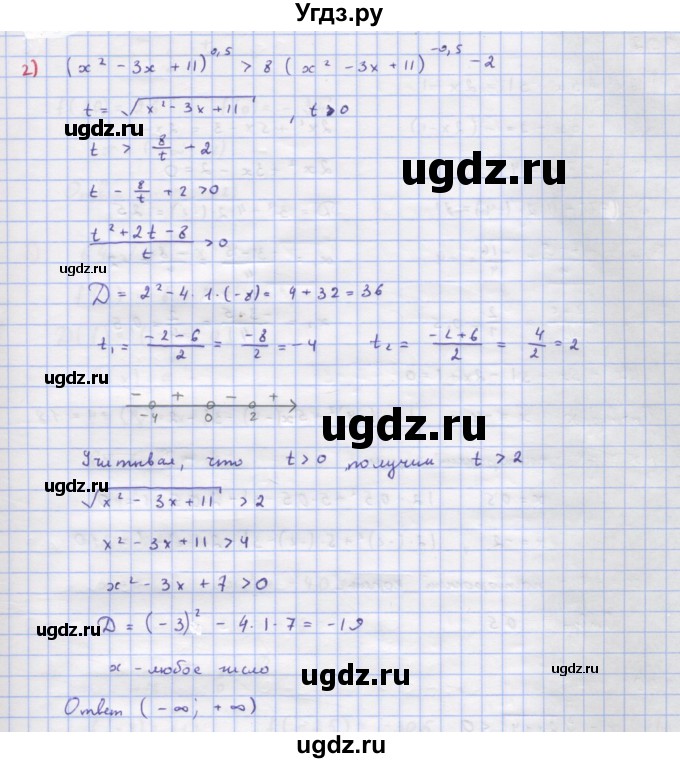 Угдз.ру
2) (x² - 3x + 11)^0,5 > 8 (x² - 3x + 11)^-0,5 - 2
t = √(x² - 3x + 11) , t > 0
ugdz.ru
t > 8/t - 2
ugdz.ru
t - 8/t + 2 > 0
(t² + 2t - 8)/t > 0
ugdz.ru
D = 2² - 4 · 1 · (-8) = 4 + 32 = 36
t₁ = (-2-6)/2 = -8/2 = -4 t₂ = (-2+6)/2 = 4/2 = 2
ugdz.ru
- + - +
-4 0 2
ugdz.ru
Учитывая, что t > 0, получим t > 2
ugdz.ru
√(x² - 3x + 11) > 2
x² - 3x + 11 > 4
x² - 3x + 7 > 0
D = (-3)² - 4 · 1 · 7 = -19
ugdz.ru
x - любое число
ugdz.ru
Ответ (-∞; +∞)
ugdz.ru